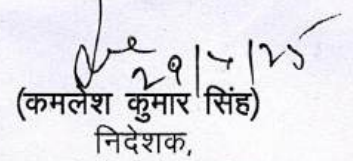 29/4/25
(कमलेश कुमार सिंह)
निदेशक,